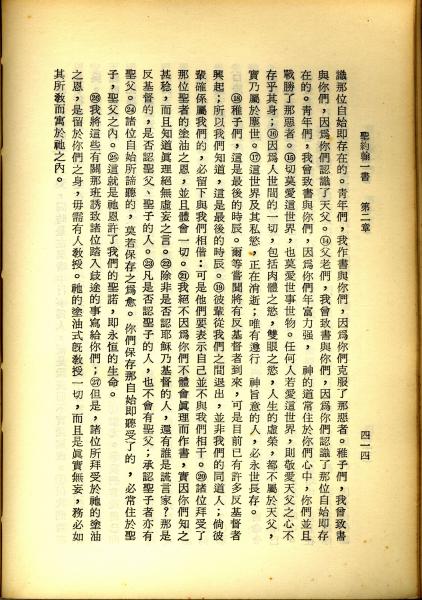 聖約翰一書　第二章
四一四
識那位自始即存在的。青年們，我作書與你們，因爲你們克服了那惡者。稚子們，我曾致書
與你們，因爲你們認識了天父。⑭父老們，我曾致書與你們，因爲你們認識了那位自始即存
在的。青年們，我曾致書與你們，因爲你們年富力强，　神的道常住於你們心中，你們並且
戰勝了那惡者。⑮切莫愛這世界，也莫愛世事世物。任何人若愛這世界，則敬愛天父之心不
存乎其身；⑯因爲人世間的一切，包括肉體之慾，雙眼之慾，人生的虛榮，都不屬於天父，
實乃屬於塵世。⑰這世界及其私慾，正在消逝；唯有遵行　神旨意的人，必永世長存。
⑱稚子們，這是最後的時辰。爾等嘗聞將有反基督者到來，可是目前已有許多反基督者
興起；所以我們知道，這是最後的時辰。⑲彼輩從我們之間退出，並非我們的同道人；倘彼
輩確係屬我們的，必留下與我們相偕：可是他們要表示自己並不與我們相干。⑳諸位拜受了
那位聖者的塗油之恩，並且體會一切。㉑我絕不因爲你們不體會眞理而作書，實因你們知之
甚稔，而且知道眞理絕無虛妄之言。㉒除非是否認耶穌乃基督的人，還有誰是謊言家？那是
反基督的，是否認聖父、聖子的人。㉓凡是否認聖子的人，也不會有聖父；承認聖子者亦有
聖父。㉔諸位自始所諦聽的，莫若保存之爲愈。你們保存那自始即聽受了的，必常住於聖
子，聖父之內。㉕這就是祂恩許了我們的聖諾，即永恒的生命。
㉖我將這些有關那班誘致諸位踏入歧途的事寫給你們；㉗但是，諸位所拜受於祂的塗油
之恩，是留於你們之身，毋需有人敎授。祂的塗油式旣敎授一切，而且是眞實無妄，務必如
其所敎而寓於祂之內。